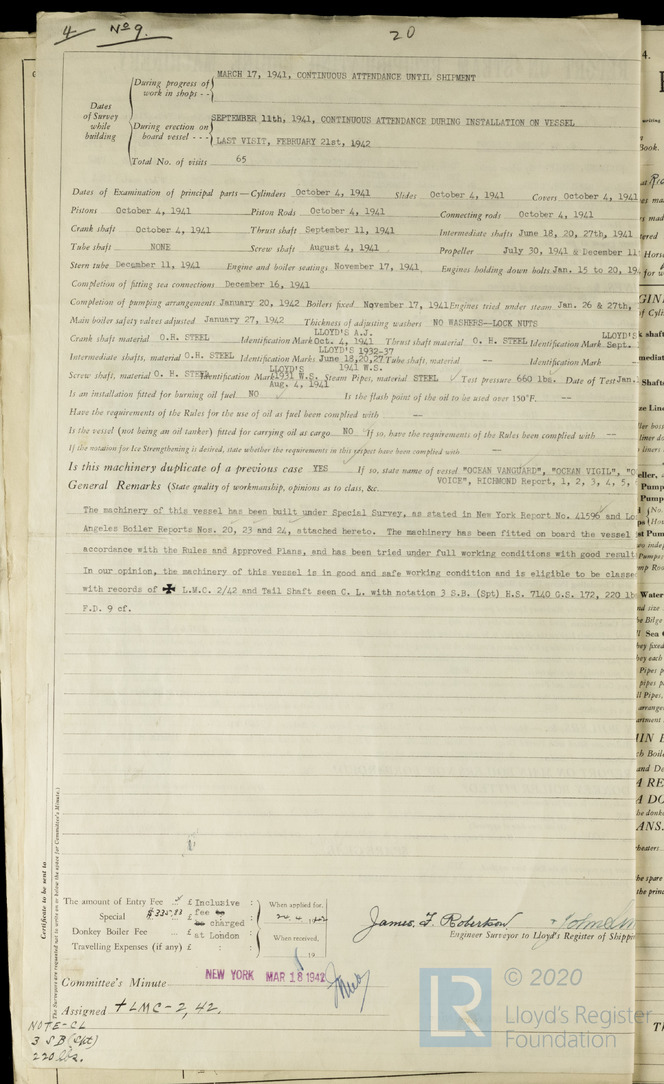 4 No 9. 20
Dates of Survey while building
During progress of work in shops - - MARCH 17, 1941, CONTINUOUS ATTENDANCE UNTIL SHIPMENT
During erection on board vessel - - - SEPTEMBER 11th, 1941, CONTINUOUS ATTENDANCE DURING INSTALLATION ON VESSEL
LAST VISIT, FEBRUARY 21st, 1942
Total No. of visits 65
Dates of Examination of principal parts—Cylinders October 4, 1941 Slides October 4, 1941 Covers October 4, 1941
Pistons October 4, 1941 Piston Rods October 4, 1941 Connecting rods October 4, 1941
Crank shaft October 4, 1941 Thrust shaft September 11, 1941 Intermediate shafts June 18, 20, 27th, 1941
Tube shaft NONE Screw shaft August 4, 1941 Propeller July 30, 1941 & December 11
Stern tube December 11, 1941 Engine and boiler seatings November 17, 1941 Engines holding down bolts Jan. 15 to 20, 19
Completion of fitting sea connections December 16, 1941
Completion of pumping arrangements January 20, 1942 Boilers fixed November 17, 1941 Engines tried under steam Jan. 26 & 27th,
Main boiler safety valves adjusted January 27, 1942 Thickness of adjusting washers NO WASHERS--LOCK NUTS
Crank shaft material O.H. STEEL Identification Mark LLOYD'S A.J. Oct. 4, 1941 Thrust shaft material O. H. STEEL Identification Mark LLOYD'S Sept.
Intermediate shafts, material O.H. STEEL Identification Marks LLOYD'S 1932-37 June 18,20,27 1941 W.S. Tube shaft, material -- Identification Mark --
Screw shaft, material O. H. STEEL Identification Mark LLOYD'S 1931 W.S. Aug. 4, 1941 Steam Pipes, material STEEL Test pressure 660 lbs. Date of Test Jan.
Is an installation fitted for burning oil fuel NO Is the flash point of the oil to be used over 150°F. --
Have the requirements of the Rules for the use of oil as fuel been complied with --
Is the vessel (not being an oil tanker) fitted for carrying oil as cargo NO If so, have the requirements of the Rules been complied with --
If the notation for Ice Strengthening is desired, state whether the requirements in this respect have been complied with --
Is this machinery duplicate of a previous case YES If so, state name of vessel "OCEAN VANGUARD", "OCEAN VIGIL", "O
VOICE", RICHMOND Report, 1, 2, 3, 4, 5,
General Remarks (State quality of workmanship, opinions as to class, &c.
The machinery of this vessel has been built under Special Survey, as stated in New York Report No. 41596 and Lo
Angeles Boiler Reports Nos. 20, 23 and 24, attached hereto. The machinery has been fitted on board the vessel
accordance with the Rules and Approved Plans, and has been tried under full working conditions with good result
In our opinion, the machinery of this vessel is in good and safe working condition and is eligible to be classe
with records of ✠ L.M.C. 2/42 and Tail Shaft seen C. L. with notation 3 S.B. (Spt) H.S. 7140 G.S. 172, 220 lb
F.D. 9 cf.
Certificate to be sent to
(The Surveyors are requested not to write on or below the space for Committee's Minute.)
The amount of Entry Fee £ Inclusive When applied for,
Special $335.88 £ fee to
be charged
Donkey Boiler Fee £ at London When received,
Travelling Expenses (if any) £ 19
James F. Robertson
Engineer Surveyor to Lloyd's Register of Shippin
NEW YORK MAR 18 1942
Committee's Minute
Assigned + LMC-2,42.
NOTE-CL
3 SB (Spt)
220 lbs.
LR
© 2020
Lloyd's Register
Foundation